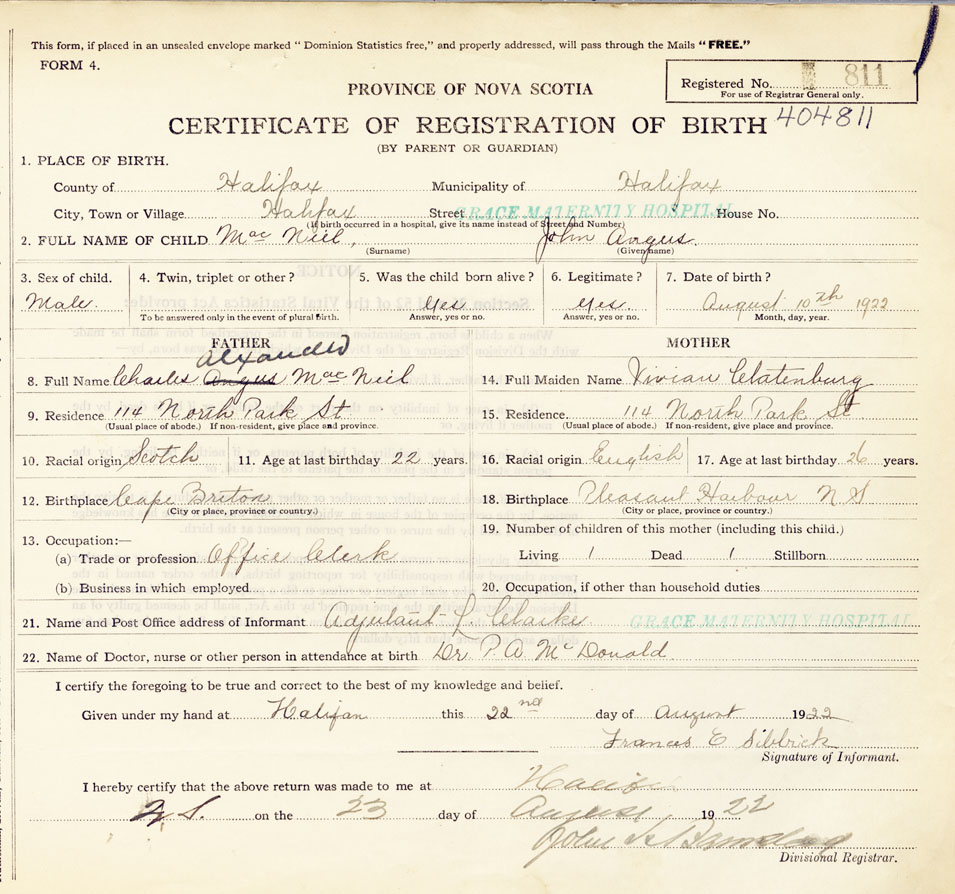 This form, if placed in an unsealed envelope marked "Dominion Statistics free," and properly addressed, will pass through the Mails "FREE."
FORM 4.
Registered No. 811
For use of Registrar General only.
PROVINCE OF NOVA SCOTIA
404811
CERTIFICATE OF REGISTRATION OF BIRTH
(BY PARENT OR GUARDIAN)
1. PLACE OF BIRTH.
County of Halifax Municipality of Halifax
City, Town or Village Halifax Street GRACE MATERNITY HOSPITAL House No.
(If birth occurred in a hospital, give its name instead of Street and Number)
2. FULL NAME OF CHILD Mac Niel, John Angus.
(Surname) (Given name)
3. Sex of child. 4. Twin, triplet or other? 5. Was the child born alive? 6. Legitimate? 7. Date of birth?
Male. Yes Yes. August 10th 1922
To be answered only in the event of plural birth. Answer, yes or no. Answer, yes or no. Month, day, year.
FATHER MOTHER
Alexander
8. Full Name Charles Angus Mac Niel 14. Full Maiden Name Vivian Clatenburg
9. Residence. 114 North Park St. 15. Residence. 114 North Park St
(Usual place of abode.) If non-resident, give place and province. (Usual place of abode.) If non-resident, give place and province.
10. Racial origin Scotch 11. Age at last birthday 22 years. 16. Racial origin English 17. Age at last birthday 26 years.
12. Birthplace Cape Breton 18. Birthplace Pleasant Harbour N S
(City or place, province or country.) (City or place, province or country.)
13. Occupation:— 19. Number of children of this mother (including this child.)
(a) Trade or profession Office Clerk Living 1 Dead 1 Stillborn
(b) Business in which employed 20. Occupation, if other than household duties
21. Name and Post Office address of Informant Adjutant L. Clarke GRACE MATERNITY HOSPITAL
22. Name of Doctor, nurse or other person in attendance at birth Dr. P. A. McDonald
I certify the foregoing to be true and correct to the best of my knowledge and belief.
Given under my hand at Halifax this 22nd day of August 1922
Frances E Sibbick
Signature of Informant.
I hereby certify that the above return was made to me at Halifax
N S. on the 23 day of August 1922
John
Divisional Registrar.